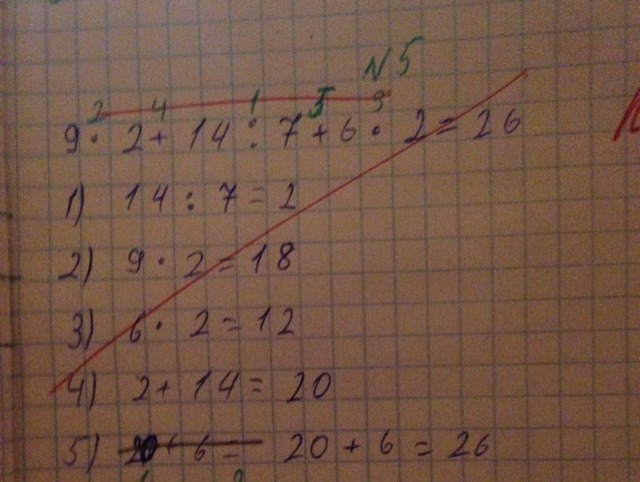 N5
2 4 1 5 3
9· 2+ 14 : 7+6· 2=26
1) 14 : 7=2
2) 9· 2=18
3) 6· 2=12
4) 2+ 14= 20
5) 20 + 6 = 26